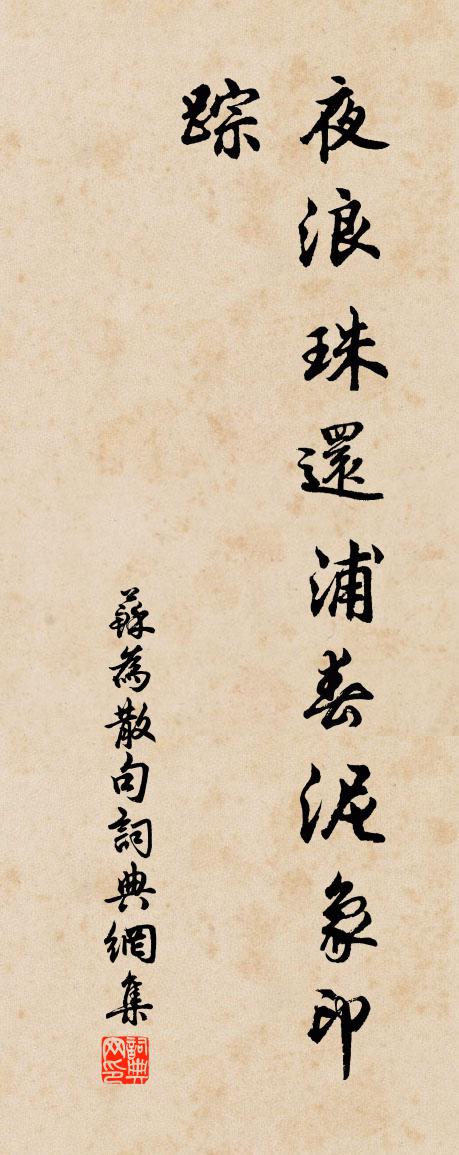 夜浪珠還浦春泥象印
踪
蘇為散句詞典網集
詞典网印